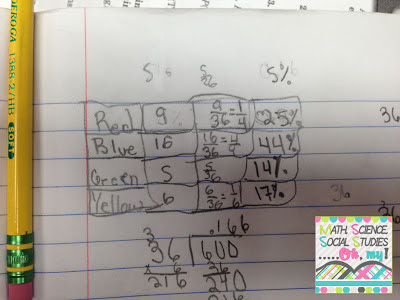 DEROGA 1388-2/HB
5%
Red 9 9/36=1/4 25%
Blue 16 16/36=4/9 44%
Green 5 5/36 14%
Yellow 6 6/36=1/6 17%
36
36
.166
3
36 600
x 6 36
216 240
216
MATH, SCIENCE,
SOCIAL STUDIES
.....Oh, my!